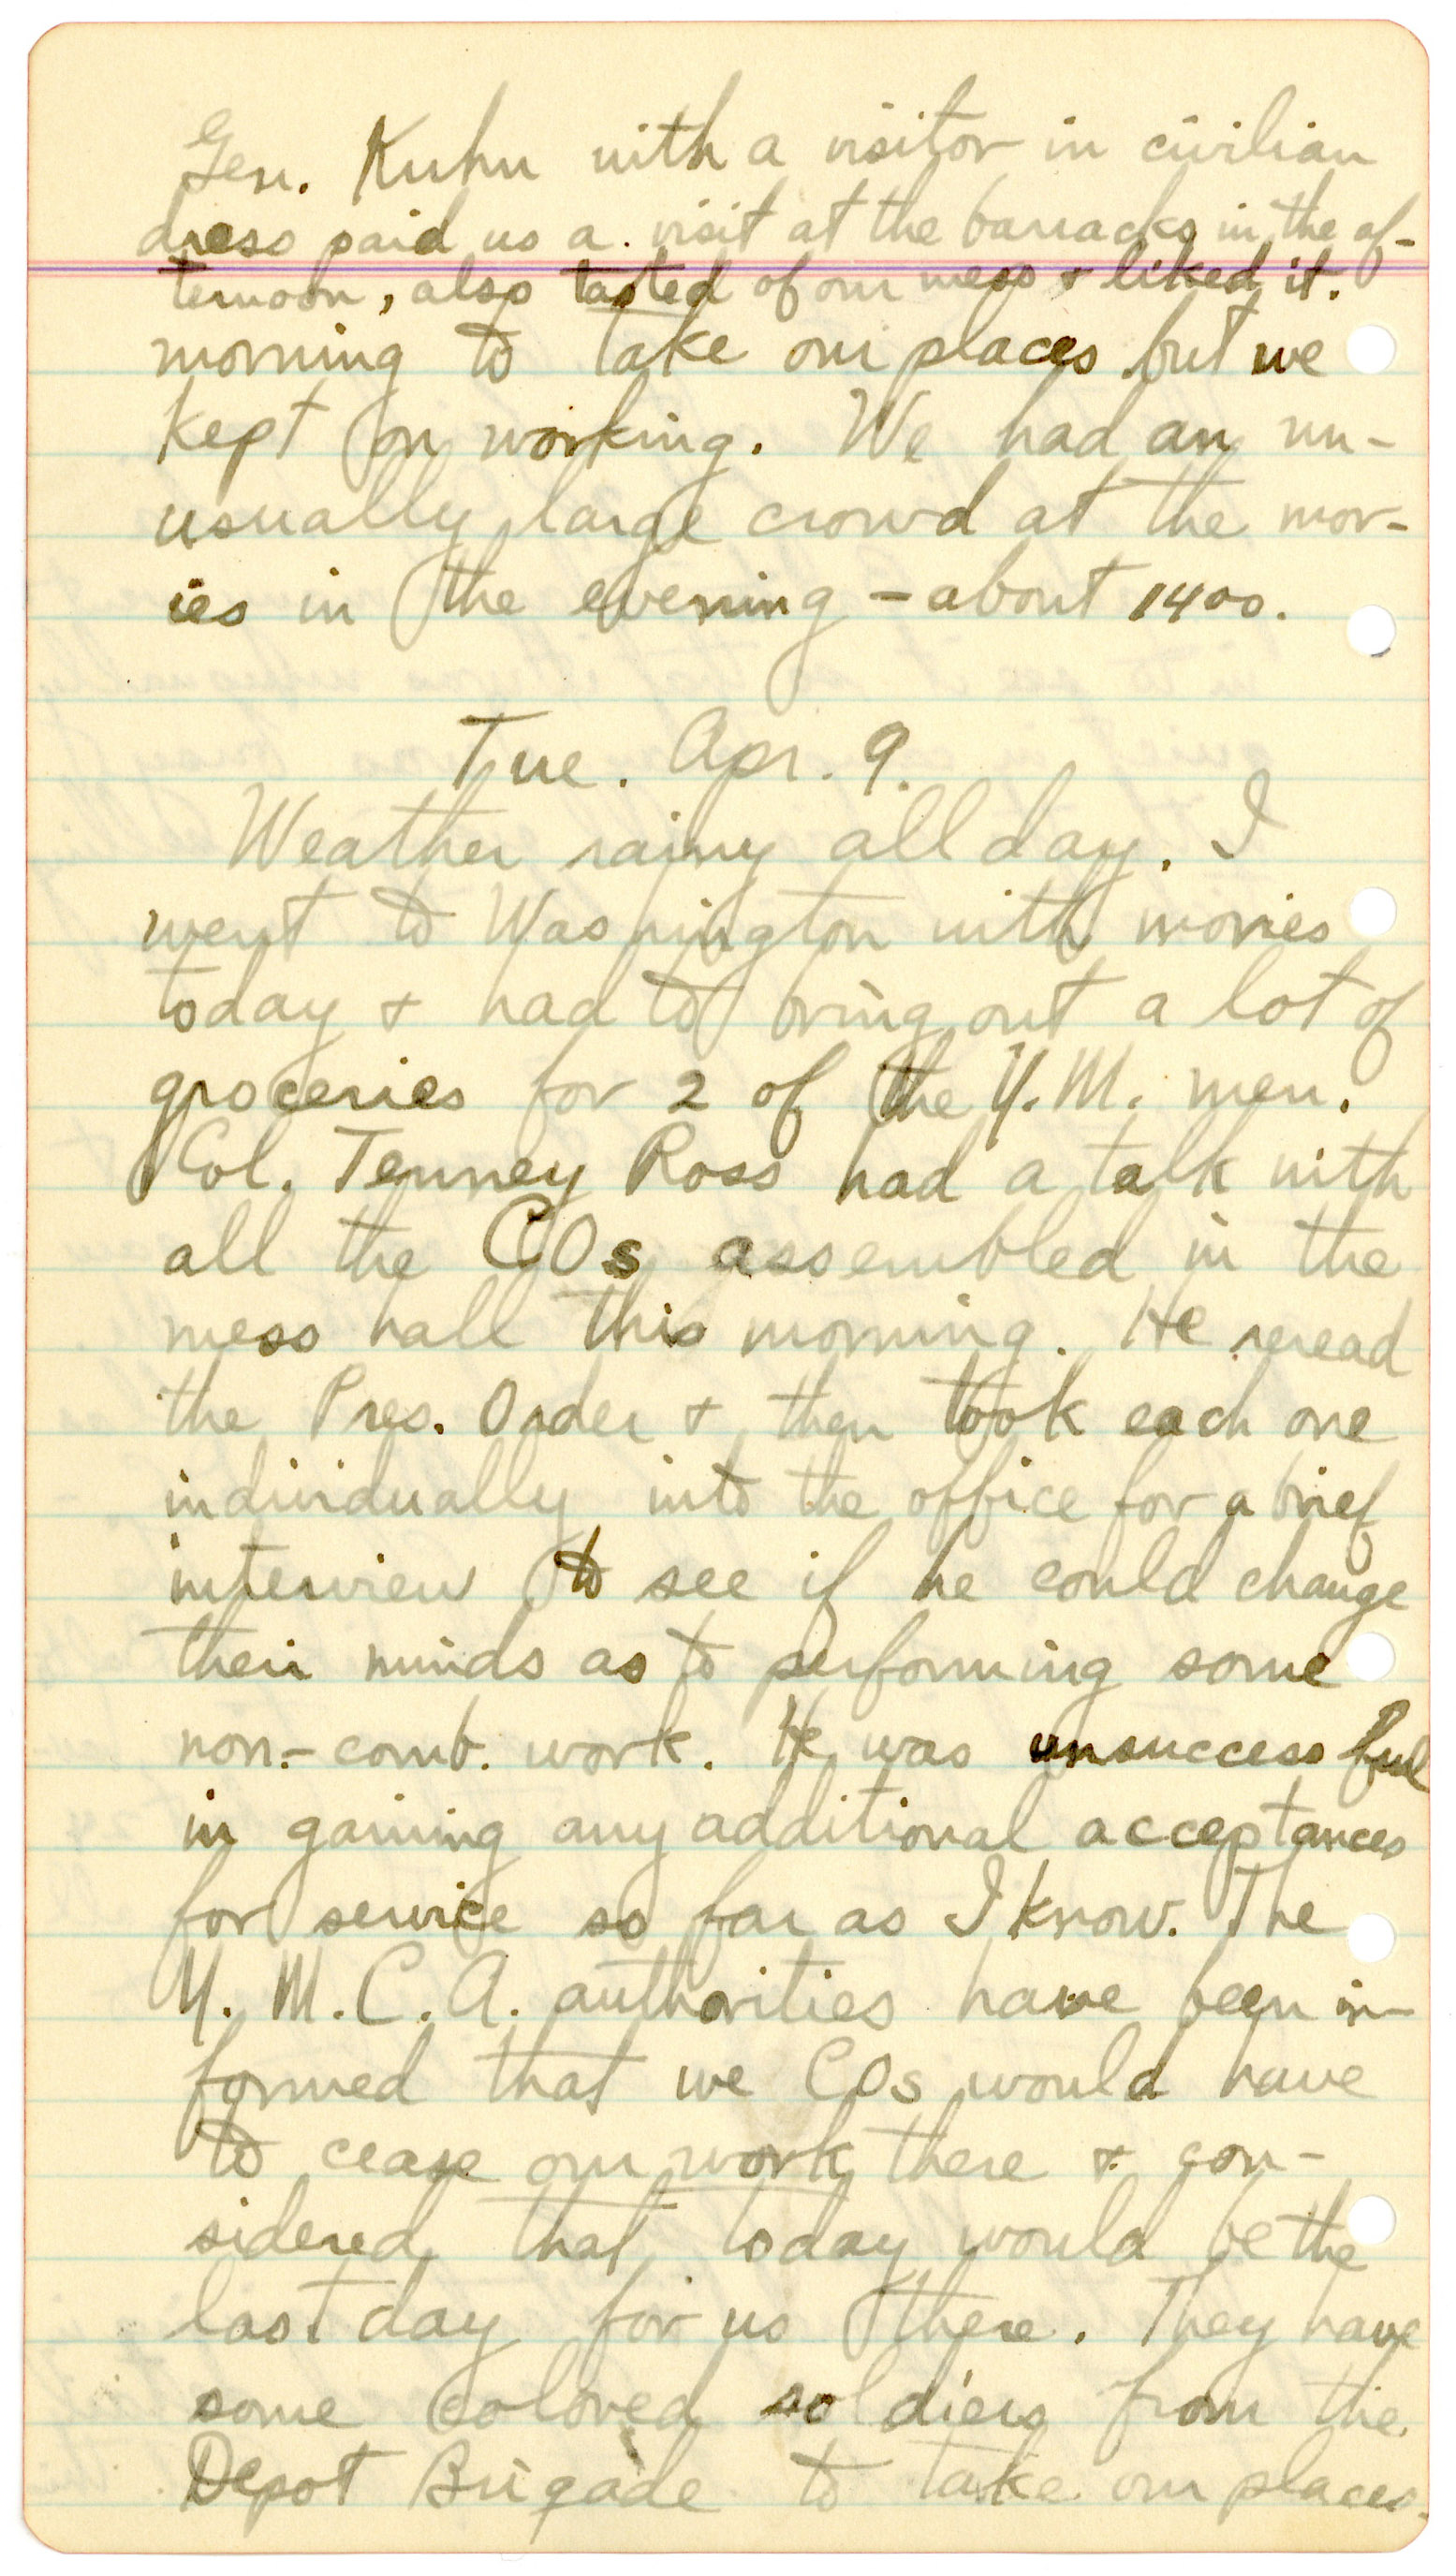 Gen. Kuhn with a visitor in civilian
dress paid us a visit at the barracks in the af-
ternoon, also tasted of our mess & liked it.
morning to take our places but we
kept on working. We had an un-
usually large crowd at the mov-
ies in the evening – about 1400.
Tue. Apr. 9.
Weather rainy all day. I
went to Washington with movies
today & had to bring out a lot of
groceries for 2 of the Y.M. men.
Col. Tenney Ross had a talk with
all the COs assembled in the
mess hall this morning. He reread
the Pres. Order & then took each one
individually into the office for a brief
interview to see if he could change
their minds as to performing some
non-comb. work. He was unsuccessful
in gaining any additional acceptances
for service so far as I know. The
Y.M.C.A. authorities have been in-
formed that we COs would have
to cease our work there & con-
sidered that today would be the
last day for us there. They have
some colored soldiers from the
Depot Brigade to take our places.